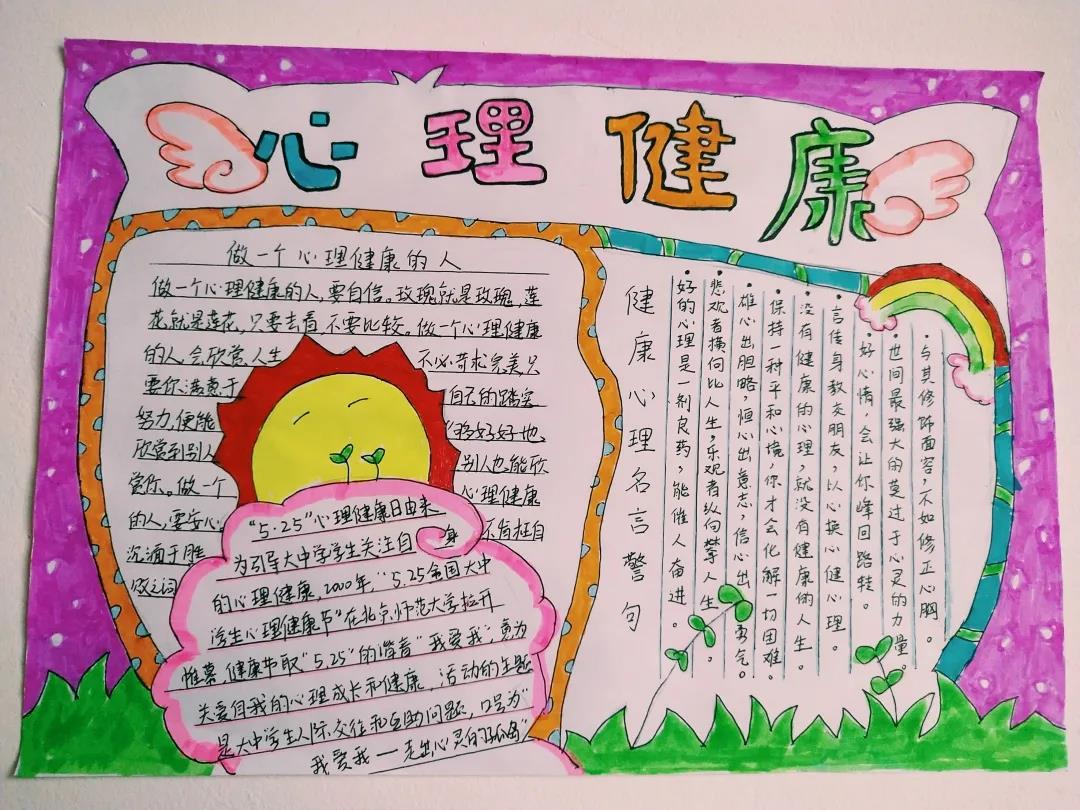 心理健康
做一个心理健康的人
做一个心理健康的人,要自信。玫瑰就是玫瑰,莲
花就是莲花,只要去看,不要比较。做一个心理健康
的人,会欣赏人生 不必苛求完美只
要你满意于 自己的踏实
努力,便能 够好好地、
欣赏到别人 别人也能欣
赏你。做一个 心理健康
的人,要安心 不有枉自
沉湎于胜
败之词
“5·25”心理健康日由来
为引导大中学学生关注自身
的心理健康,2000年,“5.25全国大中
学生心理健康节”在北京师范大学拉开
帷幕,健康节取“5.25”的谐音“我爱我”,意为
关爱自我的心理成长和健康,活动的主题
是大中学生人际交往和互助问题,口号为“
我爱我——走出心灵的孤岛”
健康心理名言警句
·与其修饰面容,不如修正心胸。
·世间最强大的莫过于心灵的力量。
好心情,会让你峰回路转。
·言传身教交朋友,以心换心健心理。
·没有健康的心理,就没有健康的人生。
·保持一种平和心境,你才会化解一切困难。
·雄心出胆略,恒心出意志,信心出勇气。
·悲观者横向比人生,乐观者纵向攀人生。
·好的心理是一剂良药,能催人奋进。